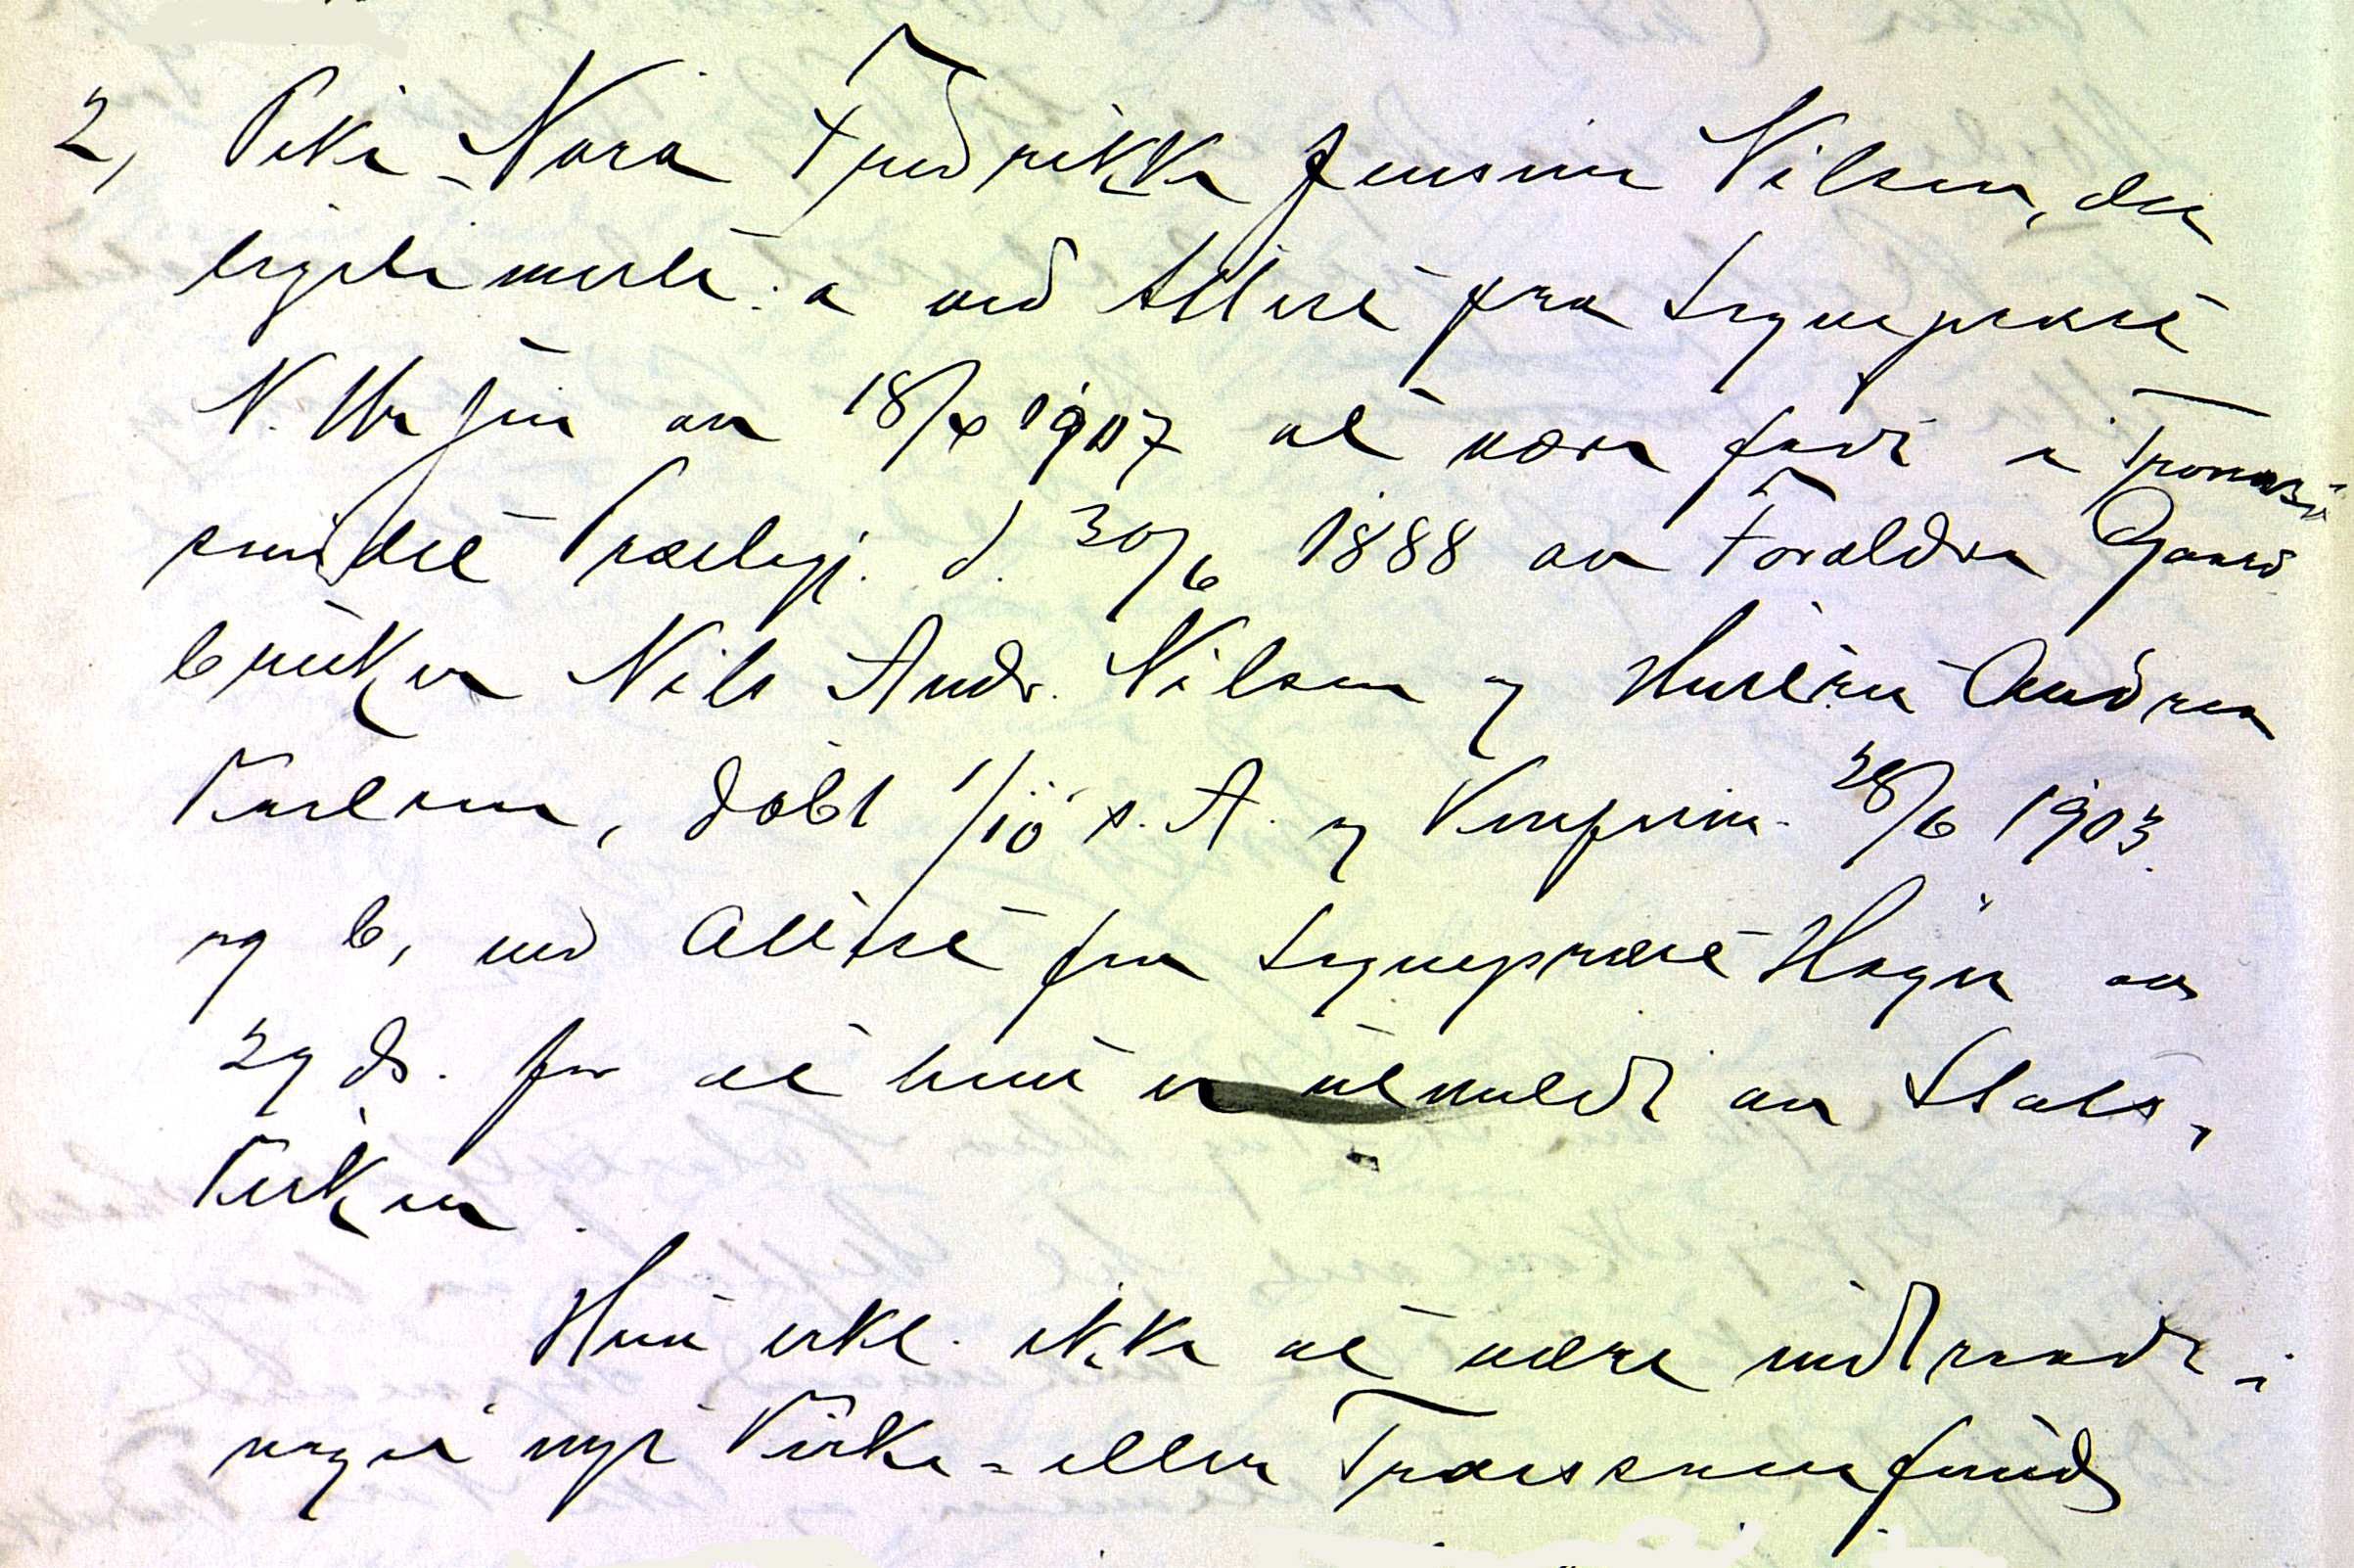 2, Pike Nora Fredrikke Jensine Nilsen, der
legitimerte: a ved Attest fra Sogneprest
N. Th. Jin av 18/4 1907 at være født i Tromsø
sundet Præstegj. d. 30/6 1888 av Forældre Gaard
bruker Nils Andr. Nilsen og Hustru Andrea
Karlsen, døbt 1/10 s. A. og Konfirm. 28/6 1903.
og b, ved Attest fra Sogneprest Hagen av
29 ds. for at hun er utmeldt av Stats-
kirken.
Hun erkl. ikke at være indtraadt i
noget nyt Kirke- eller Trossamfund